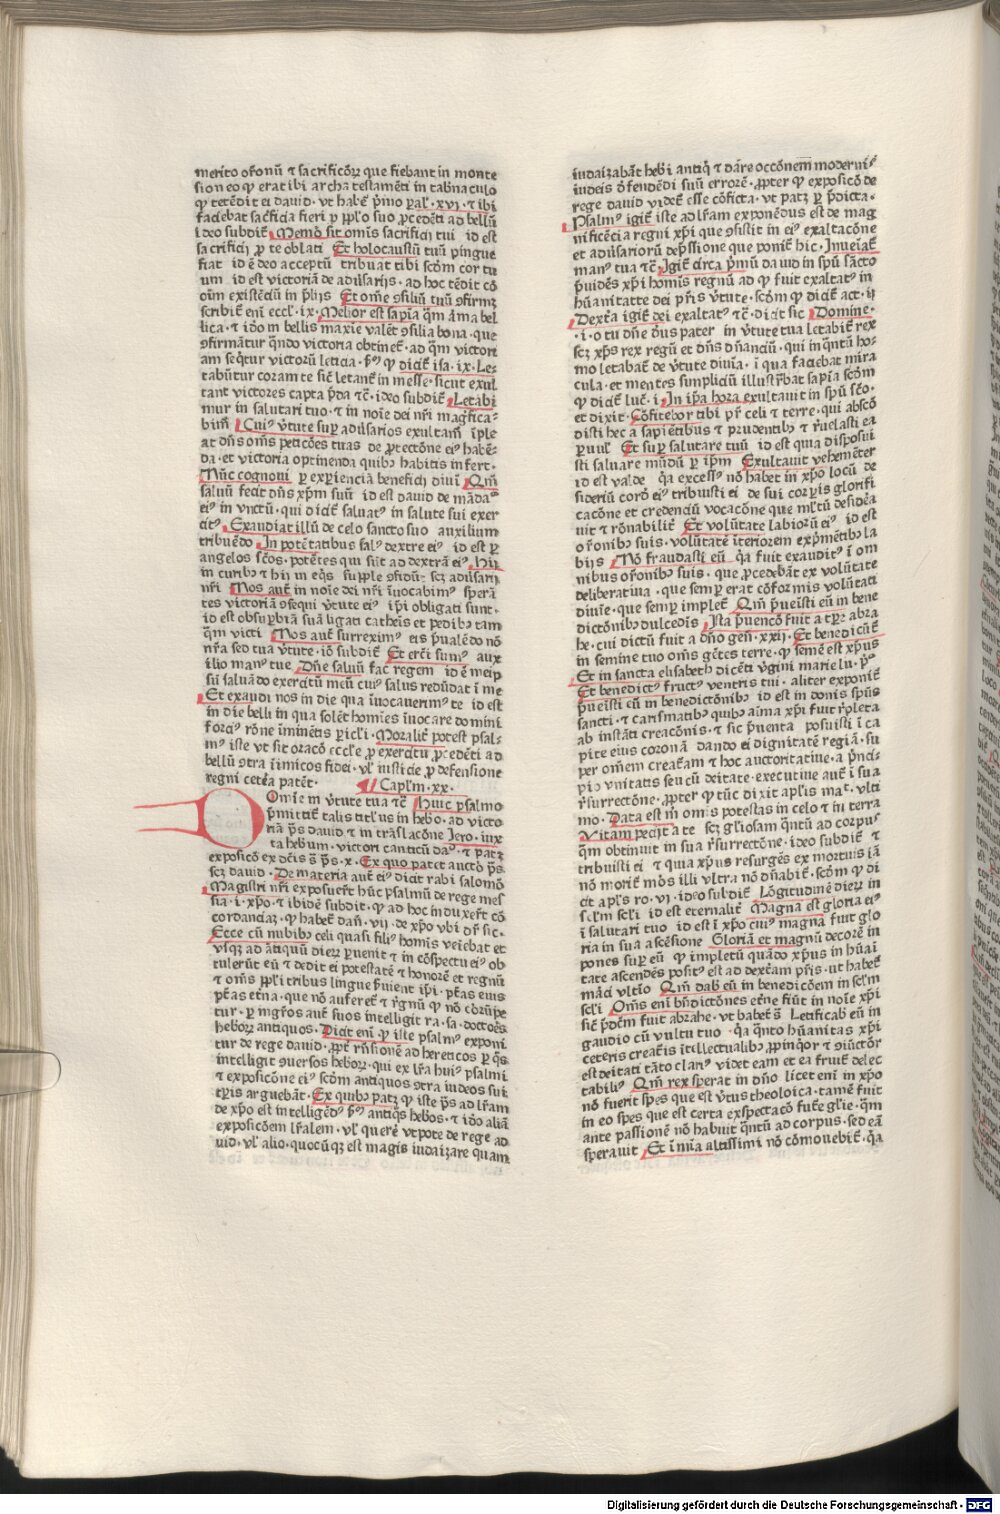 merito or̃onũ ⁊ sacrificõꝝ que fiebant in monte
sion eo ꝙ erat ibi archa testamẽti in tab̃naculo
ꝙ tetẽdit ei dauid · vt habeť pͥmo paľ · xvi · ⁊ ibi
faciebat sac̃ficia fieri ꝓ ppl̃o suo ꝓcedẽti ad bellũ
ideo subdiť Memoͬ sit om̃is sacrificij tui id est
sacrificij ꝓ te oblati Et holocaustũ tuũ pingue
fiat id ẽ deo acceptũ tribuat tibi scďm cor tu
um id est victoriã de adũsarijs · ad hoc tẽdit cõ
exñtẽdũ in p̃lijs Et om̃e ꝯsiliũ tuũ ꝯfirmꝫ
scribiť em̃ eccľ · ix · Melior est sapĩa qm̃ arma bel
lica · ⁊ iďo in bellis maxĩe valẽt ꝯsilia bona · que
ꝯfirmãtur qñdo victoria obtineť · ad qm̃ victori
am seq̃tur victorũ leticia · pͥꝰ ꝙ diciť isa · ix · Le⸗
tabũtur coram te sicť letanť in messe · sicut exul
tant victores capta p̃da ⁊c̃ · ideo subdiť Letabi
mur in salutari tuo · ⁊ in noĩe dei nr̃i mag̃fica⸗
bim̃ Cuiꝰ ṽtute suꝑ adũsarios exultam̃ ĩple
at dñs om̃s peticões tuas de ꝓtectõne eiꝰ habẽ⸗
da · et victoria optinenda quibꝰ habitis infert ·
Nũc cognoui ꝑ exꝑiencia beneficij diuĩ Qm̃
saluũ fecit dñs xp̃m suũ id est dauid de mãda⸗
eiꝰ in vnctũ · qui diciť saluaͭ in salute sui exer
citꝰ · Exaudiat illũ de celo sancto suo auxilium
tribuẽdo In potẽtatibus salꝰ dextre eiꝰ id est ꝑ
angelos scõs · potẽtes qui sũt ad dextrã eiꝰ · Hij
in curibꝰ ⁊ hij in eq̃s supple ꝯfidũt scꝫ adũsarij
nr̃i Nos auť in noĩe dei nr̃i ĩuocabimꝰ sperã
tes victoriã ꝯsequi ṽtute eiꝰ ip̃i obligati sunt ·
id est obsuꝑbiã suã ligati catheis et pedibꝰ tam
qm̃ victi Nos auť surreximꝰ eis p̃ualẽdo nõ
nr̃a sed tua ṽtute · iõ subdiť Et ereẽi sumꝰ aux
ilio manꝰ tue Dñe saluũ fac regem id ẽ me ip
sũ saluãdo exercitũ meũ cuiꝰ salus redũdat ĩ me
Et exaudi nos in die qua ĩuocauerimꝰ te id est
in die belli in qua solẽt homĩes ĩuocare domini
forciꝰ rõne iminẽtis ꝑicľi · Moraliť potest psal⸗
mꝰ iste vt sit oracõ eccľe ꝓ exercitu ꝓcedẽti ad
bellũ ꝯtra ĩimicos fidei · vľ iusticie ꝓ defensione
regni cetẽa patẽt · Capľm · xx ·
Omĩe in ṽtute tua ⁊c̃ Huic psalmo
p̃mittiť talis titľus in hebo · ad victo
riã ps̃ dauid ⁊ in trãslacõne Jero · iux
ta hebum · victori canticũ daͩ · ⁊ patꝫ
exposicõ ex dc̃is s̃ ps̃ · x · Ex quo patet auctoͬ ps̃
scꝫ dauid · De materia auť eiꝰ dicit rabi salomõ
Magistri nr̃i exposuerť hũc psalmũ de rege mes
sia · i · xp̃o · ⁊ ibidẽ subdit · ꝙ ad hoc induxerť cõ
cordanciaꝫ · ꝙ habeť dañ · vij · de xp̃o vbi dr̃ sic ·
Ecce cũ nubibꝰ celi quasi filiꝰ homis veiebat et
vsqꝫ ad ãtiquũ dieꝝ ꝑuenit ⁊ in cõspectu eiꝰ ob
tulerũt eũ ⁊ dedit ei potestatẽ ⁊ honorẽ et regnũ
⁊ om̃s ppľi tribus lingue s̃uient ip̃i · p̃tas eius
p̃tas etñа · que nõ auferẽť ⁊ r̃gnũ ꝙ nõ corũpe
tur · ꝑ mgr̃os auť suos intelligit ra · sa · doctões
heboꝝ antiquos · Dicit eni ꝙ iste psalmꝰ exponi
tur de rege dauid · ꝓpť rñsionẽ ad hereticos ꝑ qͦs
intelligit ꝯuersos heboꝝ · qui ex lr̃a huiꝰ psalmi
⁊ exposicõne eiꝰ scďm antiquos ꝯtra iudeos sui
tꝑis arguebãt · Ex quibꝰ patꝫ ꝙ iste ps̃ ad lr̃am
de xp̃o est intelligẽdꝰ pͥꝰ antiqͦs hebos · ⁊ iďo aliã
exposicõem lr̃alem · vľ querẽ vtpote de rege ad
uid · vľ alio · quocũqꝫ est magis iudaizare quam
iudaizabãt heb̃i antiq̃ ⁊ dare occõnem moderniˢ
iudeis ď fendẽdi suũ errorẽ · ꝓpter ꝙ exposicõ de
rege dauid videť esse cõficta · vt patꝫ ꝑ p̃dicta ·
Psalmꝰ igiť iste ad lr̃am exponẽdus est de mag
nificẽcia regni xp̃i que ꝯsistit in eiꝰ exaltacõne
et adũsarioꝝ dep̃ssione que poniť hic · Inueiať
manꝰ tua ⁊c̃ · Igiť circa pͥmũ dauid in spũ sãcto
p̃uidẽs xp̃i homis regnũ ad ꝙ fuit exaltatꝰ in
hũanitatte dei p̃ris ṽtute · scďm ꝙ diciť act · ij
Dextẽa igiť dei exaltatꝰ ⁊c̃ · dicit sic Domine ·
· i · o tu dñe dẽus pater in ṽtute tua letabiť rex
scꝫ xp̃s rex regũ et dñs dñanciũ · qui inqͣntũ ho⸗
mo letabať de ṽtute diuĩa · ĩ qua faciebat mira
cula · et mentes simplicũ illustrãbat sapĩa scďm
ꝙ diciť luc̃ · i · In ip̃a hora exultauit in spũ scõ ·
et dixit · Cõfitebor tibi p̃r celi ⁊ terre · qui abscõ
disti hec a sapiẽtibus ⁊ prudentibꝰ ⁊ r̃uelasti ea
ꝑuuľ Et suꝑ salutare tuũ id est qua disposui
sti saluare mũdũ ꝑ ip̃m Exultauit vehemẽter
id est valde q̃a excessꝰ nõ habet in xp̃o locũ de
sideriũ cord̃ eiꝰ tribuisti ei de sui corꝑis glorifi
cacõne et credendũ vocacõne que mľtũ desideã
uit ⁊ rõnabiliť Et volũtate labiorũ eiꝰ id est
or̃onibꝰ suis · volũtatẽ ĩteriorem exp̃mẽtibꝰ la
bijs Nõ fraudasti eũ q̃a fuit exauditꝰ ĩ om
nibus or̃onibꝰ suis · que ꝓcedebãt ex volũtate
deliberatiua · que semꝑ erat cõformis volũtati
diuĩe · que semꝑ impleť Qm̃ p̃ueĩsti eũ in bene
dictõnibꝰ dulcedis Ista p̃uencõ fuit a tꝑꝫ abra
he · cui dictũ fuit a dño geñ · xxij · Et benedicũť
in semine tuo om̃s gẽtes terre · ꝙ semẽ est xp̃us
Et in sancta elisabeth dicẽti ṽgini marie lu · pͥꝰ
Et benedictꝰ fructꝰ ventris tui · aliter exponiť
p̃ueĩsti eũ in benedictõnibꝰ id est in donis spũs
sancti · ⁊ carismatibꝰ quibꝰ aĩma xp̃i fuit r̃pleta
ab instãti creacõnis · ⁊ sic p̃uenta posuisti ĩ ca
pite eius coronã dando ei dignitatẽ regiã · su
per om̃em creatãm ⁊ hoc auctoritatiue · a p̃nci⸗
pio vnitatis seu cũ deitate · executiue auť ĩ sui
r̃surrectõne · ꝓpter ꝙ tũc dixit apľis maͭ · vlti
mo · Data est m̃ om̃is potestas in celo ⁊ in terra
Vitam peciit a te scꝫ gľiosam qͣntũ ad corpus
qm̃ obtinuit in sua r̃surrectõne · ideo subdiť ⁊
tribuisti ei ⁊ quia xp̃us resurgẽs ex mortuis iã
nõ moriť mõs illi vltra nõ dñabiť · scďm ꝙ di
cit apľs ro · vi · ideo subdiť Lõgitudinẽ dieꝝ in
scľm scľi id est eternaliť Magna est gloria eiꝰ
ĩ salutari tuo id est ĩ xp̃o cuiꝰ magna fuit glo
ria in sua ascẽsione Gloriã et magnũ decorẽ in
pones suꝑ eũ ꝙ impletũ quãdo xp̃us in hũai
tate ascendẽs positꝰ est ad dextẽam p̃ris · ut habeť
mãci vltĩo Qm̃ dab̃ eũ in benedicõem in scľm
scľi · Om̃s eni b̃ndictõnes etẽne fiũt in noĩe xp̃i
sicť p̃dc̃m fuit abrahe · vt habeť s̃ Letificab̃ eũ in
gaudio cũ vultu tuo · q̃a qͣnto hũanitas xp̃i
ceteris creať̃is ĩtellectualibꝰ ꝓpinqͦr ⁊ ꝯiũctõr
est deitati tãto clariꝰ videt eam et ea fruiť delec
tabiliꝰ Qm̃ rex sperat in dño licet eni in xp̃o
nõ fuerit spes que est ṽtus theoloica · tamẽ fuit
in eo spes que est certa exspectacõ futẽ gľie · qm̃
ante passionẽ nõ habuit qͣntũ ad corpus · sed eã
sperauit Et ĩ mĩa altissimi nõ cõmouebiť · q̃a
Digitalisierung gefördert durch die Deutsche Forschungsgemeinschaft - DFG